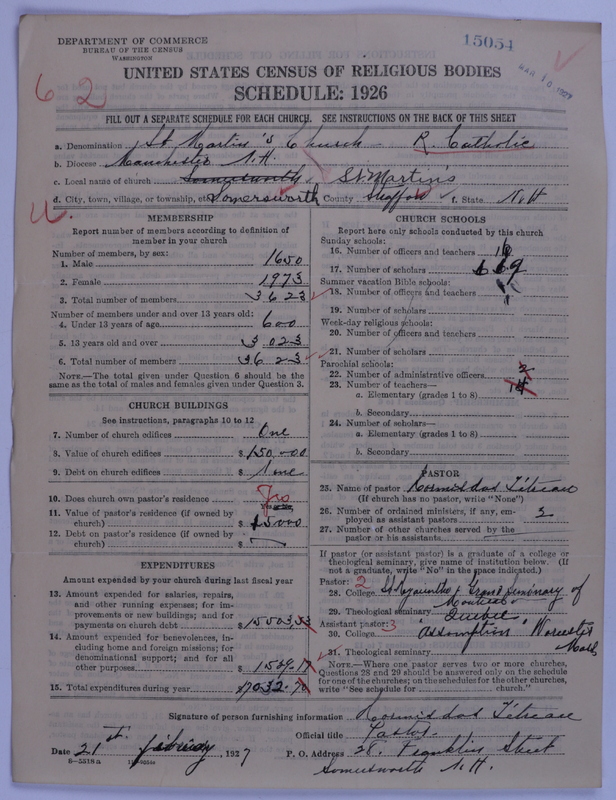 DEPARTMENT OF COMMERCE
BUREAU OF THE CENSUS
WASHINGTON
15054
MAR 10 1927
62
UNITED STATES CENSUS OF RELIGIOUS BODIES
SCHEDULE: 1926
FILL OUT A SEPARATE SCHEDULE FOR EACH CHURCH. SEE INSTRUCTIONS ON THE BACK OF THIS SHEET
a. Denomination St Martin's Church R. Catholic
b. Diocese Manchester N.H.
c. Local name of church Somersworth St Martins
d. City, town, village, or township, etc. Somersworth County Strafford f. State N.H
MEMBERSHIP
Report number of members according to definition of
member in your church
Number of members, by sex:
1. Male 1650
2. Female 1973
3. Total number of members 3623
Number of members under and over 13 years old:
4. Under 13 years of age 600
5. 13 years old and over 3023
6. Total number of members 3623
NOTE.—The total given under Question 6 should be the
same as the total of males and females given under Question 3.
CHURCH BUILDINGS
See instructions, paragraphs 10 to 12
7. Number of church edifices One
8. Value of church edifices $150,000
9. Debt on church edifices $ None
10. Does church own pastor's residence Yes
11. Value of pastor's residence (if owned by
church) $15000
12. Debt on pastor's residence (if owned by
church) $
EXPENDITURES
Amount expended by your church during last fiscal year
13. Amount expended for salaries, repairs,
and other running expenses; for im-
provements or new buildings; and for
payments on church debt $15503,53
14. Amount expended for benevolences, in-
cluding home and foreign missions; for
denominational support; and for all
other purposes $1529.17
15. Total expenditures during year $17032.70
CHURCH SCHOOLS
Report here only schools conducted by this church
Sunday schools:
16. Number of officers and teachers
17. Number of scholars
Summer vacation Bible schools:
18. Number of officers and teachers
19. Number of scholars
Week-day religious schools:
20. Number of officers and teachers
21. Number of scholars
Parochial schools:
22. Number of administrative officers 2
23. Number of teachers—
a. Elementary (grades 1 to 8)
b. Secondary
24. Number of scholars—
a. Elementary (grades 1 to 8)
b. Secondary
PASTOR
25. Name of pastor Hormisdas Tétreau
(If church has no pastor, write "None")
26. Number of ordained ministers, if any, em-
ployed as assistant pastors 3
27. Number of other churches served by the
pastor or his assistants
If pastor (or assistant pastor) is a graduate of a college or
theological seminary, give name of institution below. (If
not a graduate, write "No" in the space indicated.)
Pastor: 2
28. College St Hyacinthe, Grand Seminary of
29. Theological seminary Montreal
Assistant pastor: 3 Quebec
30. College "Assumption" Worcester
31. Theological seminary Mass
NOTE.—Where one pastor serves two or more churches,
Questions 28 and 29 should be answered only on the schedule
for one of the churches; on the schedules for the other churches,
write "See schedule for church."
Signature of person furnishing information Hormisdas Tétreau
Official title Pastor
Date 21st february, 1927 P. O. Address 28. Franklin Street
8—5518a
Somersworth N.H.